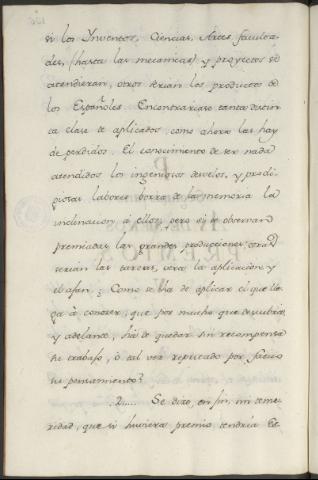 si los Ynventos, Ciencias, Artes, faculta-
des, (hasta las mecanicas) y proyectos se
atendieran, otros serian los productos de
los Españoles. Encontrariase tanta distin-
ta clase de aplicados, como ahora las hay
de perdidos. El conocimiento de ser nada
atendidos los ingeniosos desvelos, y prodi-
giosas labores borra de la memoria la
inclinacion á ellos, pero si se observaran
premiadas las grandes producciones, otras
serian las tareas, otra la aplicacion y
el afan. ¿Como se ha de aplicar el que lle-
ga á conocer, que por mucho que descubra,
y adelante, ha de quedar sin recompensa
su trabajo, ó tal vez reputado por fatuo
su pensamiento?
2..... Se dirá, en fin, mi teme-
ridad, que si huviera premio tendria Es-